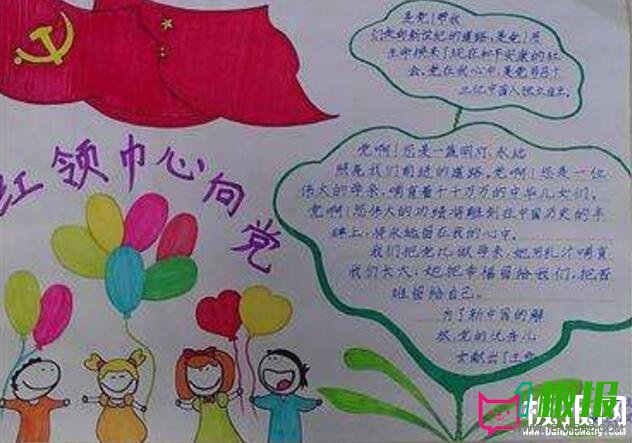 红领巾心向党
是党！帮我
们走到新世纪的道路，是党！用
生命换来了现在和平安康的社
会。党在我心中，是党将各个
立亿中国人独立自主。
党啊！您是一盏明灯，永远
照亮我们前进的道路。党啊！您是一位
伟大的母亲，哺育着十千万万的中华儿女们。
党啊！您伟大的功绩将雕刻在中国历史的丰
碑上，将永远留在我的心中。
我们把党比做母亲，她用乳汁哺育
我们长大，她把幸福留给我们，把苦
难留给自己。
为了新中国的解
放，党的优秀儿
女献出了生命
板报
板报网
www.banbaowang.com